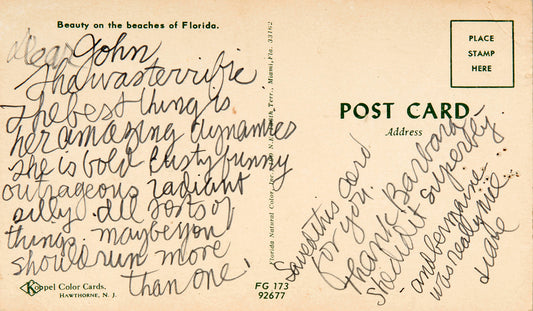 Beauty on the beaches of Florida.
Dear John
The best thing is
her amazing dynamics
she is bold lusty funny
outrageous radiant
silly. All sorts of
things. maybe you
should run more
than one.
Koppel Color Cards.
HAWTHORNE, N. J.
Florida Natural Color, Inc. N.E. Terr., Miami, Fla. 33162
FG 173
92677
PLACE
STAMP
HERE
POST CARD
Address
Saved this card
for you.
Thank Barbara
She did it superbly
and
was really nice